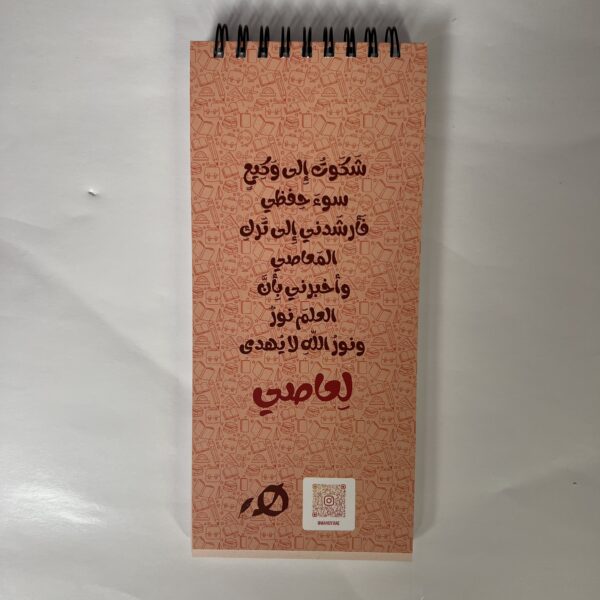 شَكَوتُ إِلى وَكيعٍ
سوءَ حِفظي
فَأَرشَدني إِلى تَركِ
المَعاصي
وأخبرني بِأَنَّ
العلمَ نورٌ
ونورُ اللّهِ لا يُهدى
لِعاصي